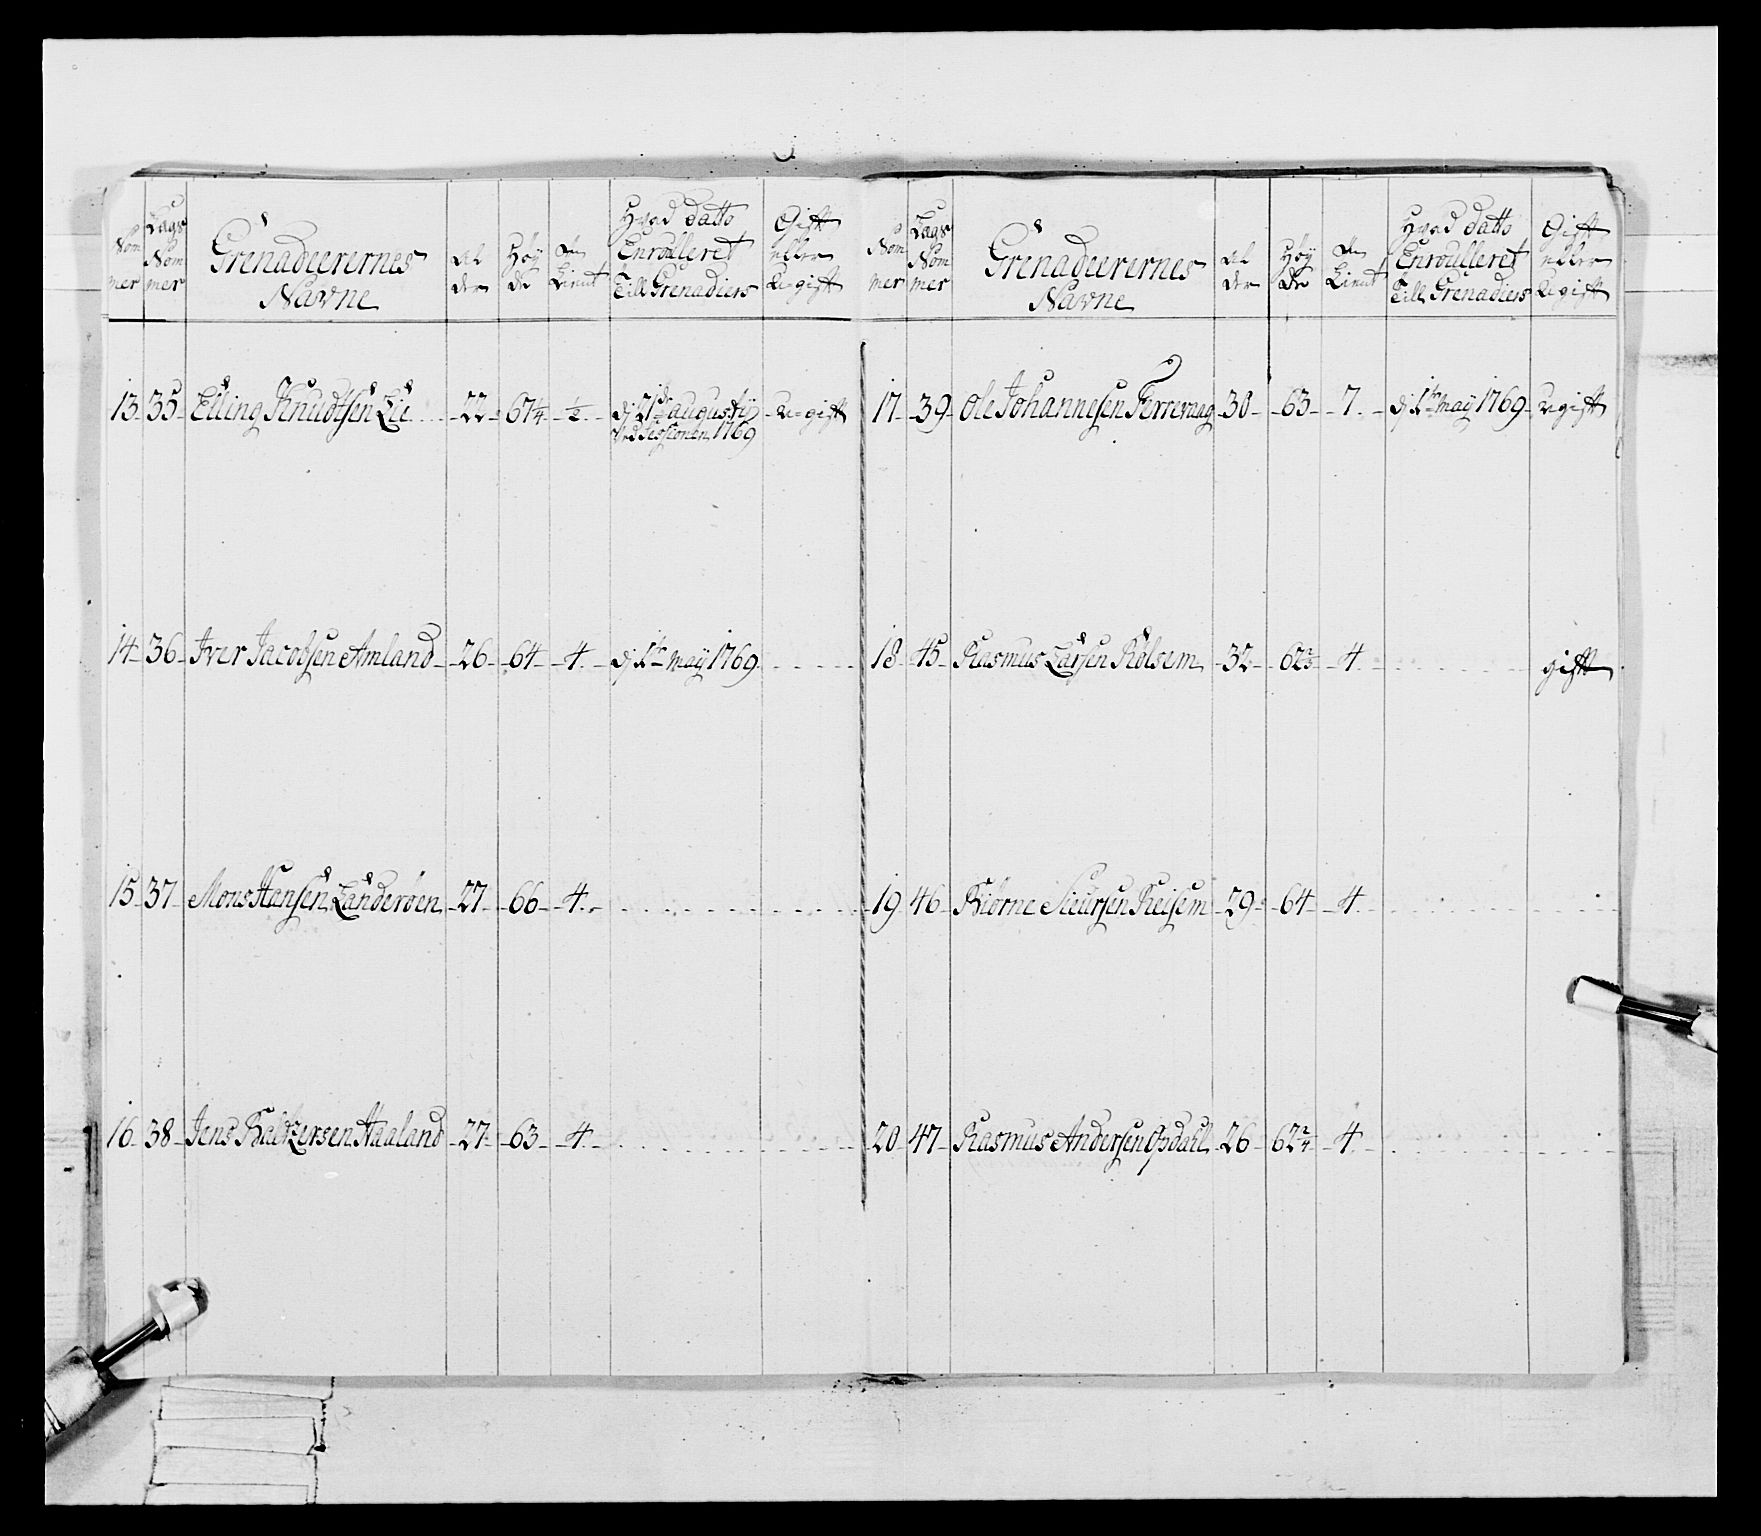 Nom mer | Lags Nom mer | Grenadeerernes Navne | Al der | Høy de | Tienst | Hvad Datto Enroulleret Till Grenadiers | Gift eller Ugift
13 | 35 | Elling Knudtsen Lie | 22 | 67¼ | ½ | d: 21de augustij ved Sessionen 1769 | Ugift
14 | 36 | Iver Jacobsen Amland | 26 | 64 | 4 | d: 1te may 1769
15 | 37 | Mons Hansen Landerøen | 27 | 66 | 4
16 | 38 | Jens Baltzersen Haaland | 27 | 63 | 4
Nom mer | Lags Nom mer | Grenadeerernes Navne | Al der | Høy de | Tienst | Hvad Datto Enroulleret Till Grenadiers | Gift eller Ugift
17 | 39 | Ole Johannesen | 30 | 63 | 7 | d: 1te may 1769 | Ugift
18 | 45 | Rasmus Larsen Rølsem | 32 | 62 | 4 | gift
19 | 46 | Biørne Siursen Reisem | 29 | 64 | 4
20 | 47 | Rasmus Andersen Opdahl | 26 | 62 | 4